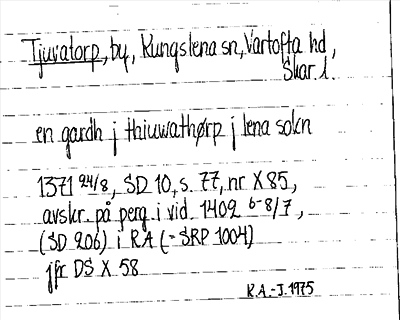 Tjuvatorp, by, Kungslena sn, Vartofta hd,
Skar. l.
en gardh j thiuwathørp j lena sokn
1371 24/8, SD 10, s. 77, nr X 85,
avskr. på perg. i vid. 1402 6-8/7,
(SD 206) i RA (=SRP 1004)
jfr DS X 58
R.A.-J. 1975